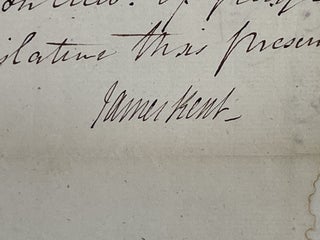 islative this presen
James Kent